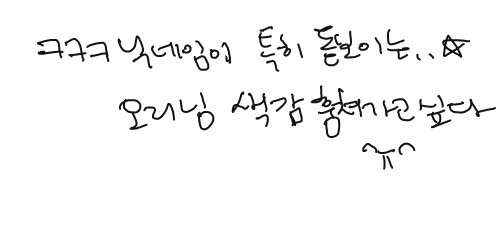 ㅋㅋㅋ 닉네임이 특히 돋보이는..☆
오리님 색감 훔쳐가고싶다
ㅠㅠ